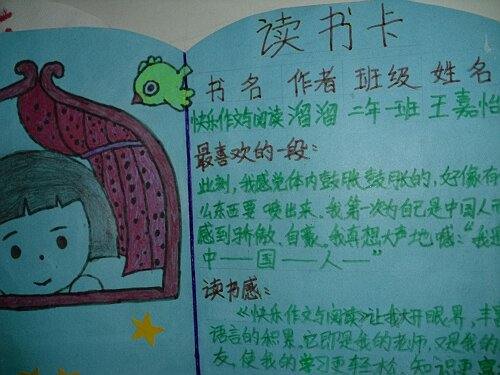 读书卡
书名 作者 班级 姓名
快乐作文与阅读 溜溜 二年一班 王嘉怡
最喜欢的一段：
此刻，我感觉体内鼓胀鼓胀的，好像有
么东西要喷出来。我第一次为自己是中国人而
感到骄傲、自豪。我真想大声地喊：“我是
中——国——人——”
读书感：
《快乐作文与阅读》让我大开眼界，丰富
语言的积累。它即是我的老师，又是我的
友，使我的学习更轻松，知识更